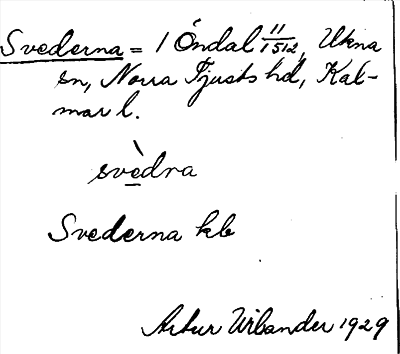 Svederna = 1 Öndal 11/1512, Ukna
sn, Norra Tjusts hd, Kal-
mar l.
svèdra
Svederna kb
Artur Wilander 1929